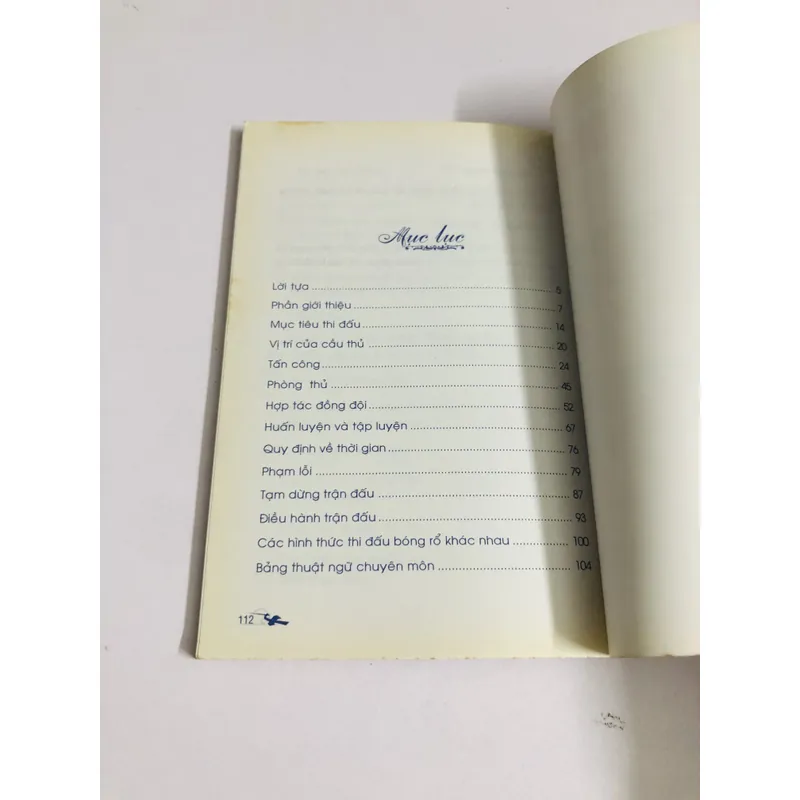 Mục lục
Lời tựa ........................................................ 5
Phần giới thiệu ........................................................ 7
Mục tiêu thi đấu ........................................................ 14
Vị trí của cầu thủ ........................................................ 20
Tấn công ........................................................ 24
Phòng thủ ........................................................ 45
Hợp tác đồng đội ........................................................ 52
Huấn luyện và tập luyện ........................................................ 67
Quy định về thời gian ........................................................ 76
Phạm lỗi ........................................................ 79
Tạm dừng trận đấu ........................................................ 87
Điều hành trận đấu ........................................................ 93
Các hình thức thi đấu bóng rổ khác nhau ................ 100
Bảng thuật ngữ chuyên môn ........................................ 104
112